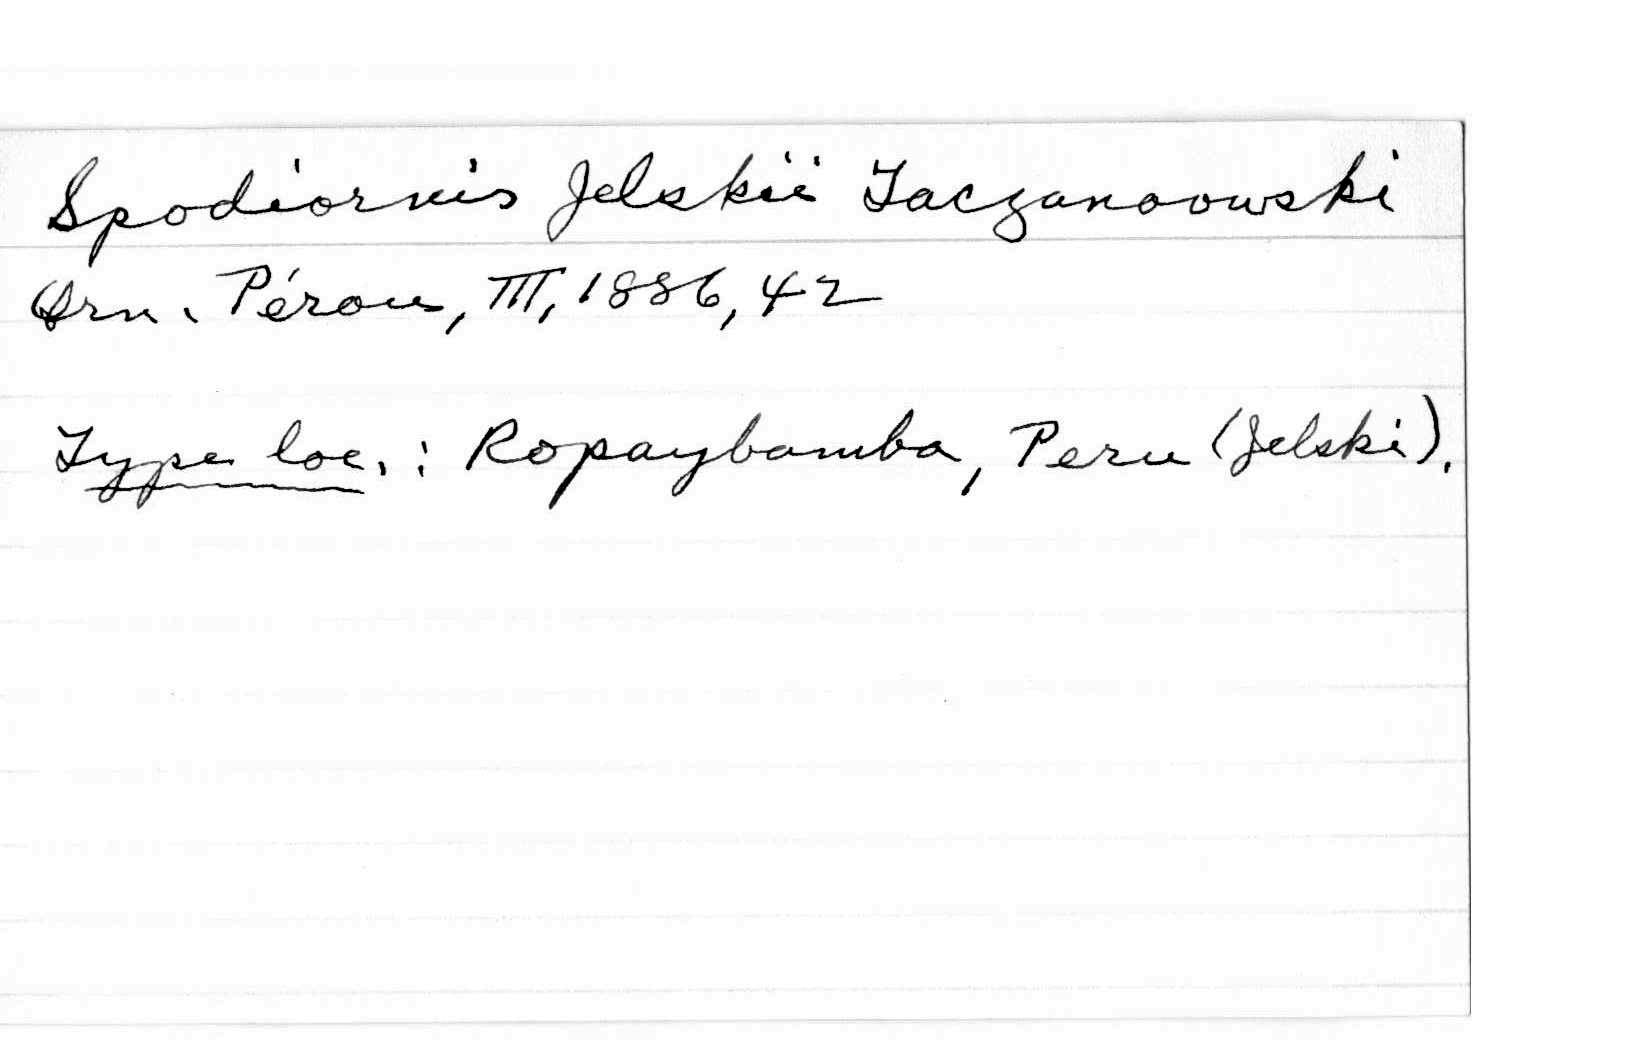 Spodiornis Jelskii Taczanoowski
Orn. Pérou, III, 1886, 42
Type loc. : Ropaybamba, Peru (Jelski).